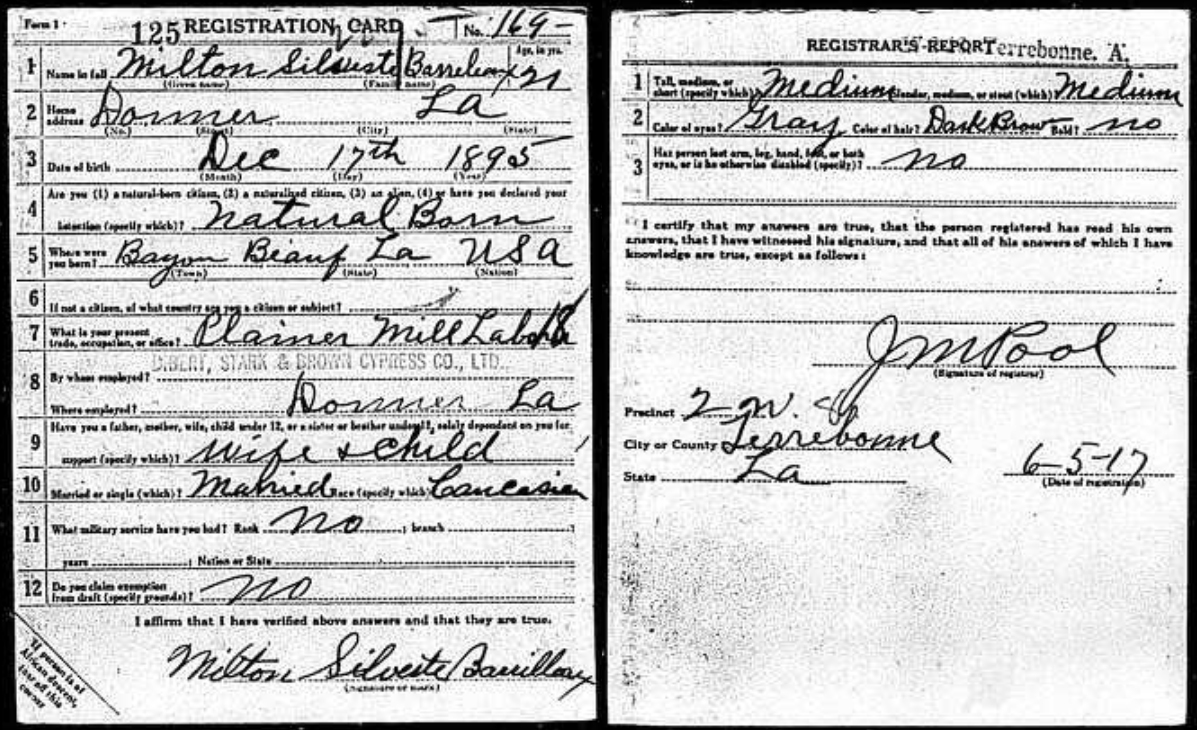 Form 1 125 REGISTRATION CARD No. 169-
1 Name in full Milton Silveste Barrileaux Age, in yrs. 21
(Given name) (Family name)
2 Home address Donner La
(No.) (Street) (City) (State)
3 Date of birth Dec 17th 1895
(Month) (Day) (Year)
4 Are you (1) a natural-born citizen, (2) a naturalized citizen, (3) an alien, (4) or have you declared your
intention (specify which)? Natural Born
5 Where were you born? Bayou Beauf La USA
(Town) (State) (Nation)
6 If not a citizen, of what country are you a citizen or subject?
7 What is your present trade, occupation, or office? Plainer Mill Labor 18
DIBERT, STARK & BROWN CYPRESS CO., LTD.
8 By whom employed?
Where employed? Donner La
9 Have you a father, mother, wife, child under 12, or a sister or brother under 12, solely dependent on you for
support (specify which)? Wife & child
10 Married or single (which)? Married Race (specify which)? Caucasian
11 What military service have you had? Rank no ; branch
years ; Nation or State
12 Do you claim exemption from draft (specify grounds)? no
I affirm that I have verified above answers and that they are true.
Milton Silveste Barrilleaux
(Signature or mark)
If person is of
African descent,
tear off this
corner
REGISTRAR'S REPORT Terrebonne. A.
1 Tall, medium, or short (specify which)? Medium Slender, medium, or stout (which)? Medium
2 Color of eyes? Gray Color of hair? Dark Brow Bald? no
3 Has person lost arm, leg, hand, foot, or both
eyes, or is he otherwise disabled (specify)? no
I certify that my answers are true, that the person registered has read his own
answers, that I have witnessed his signature, and that all of his answers of which I have
knowledge are true, except as follows:
J M Pool
(Signature of registrar)
Precinct 2 W.
City or County Terrebonne
State La 6-5-17
(Date of registration)